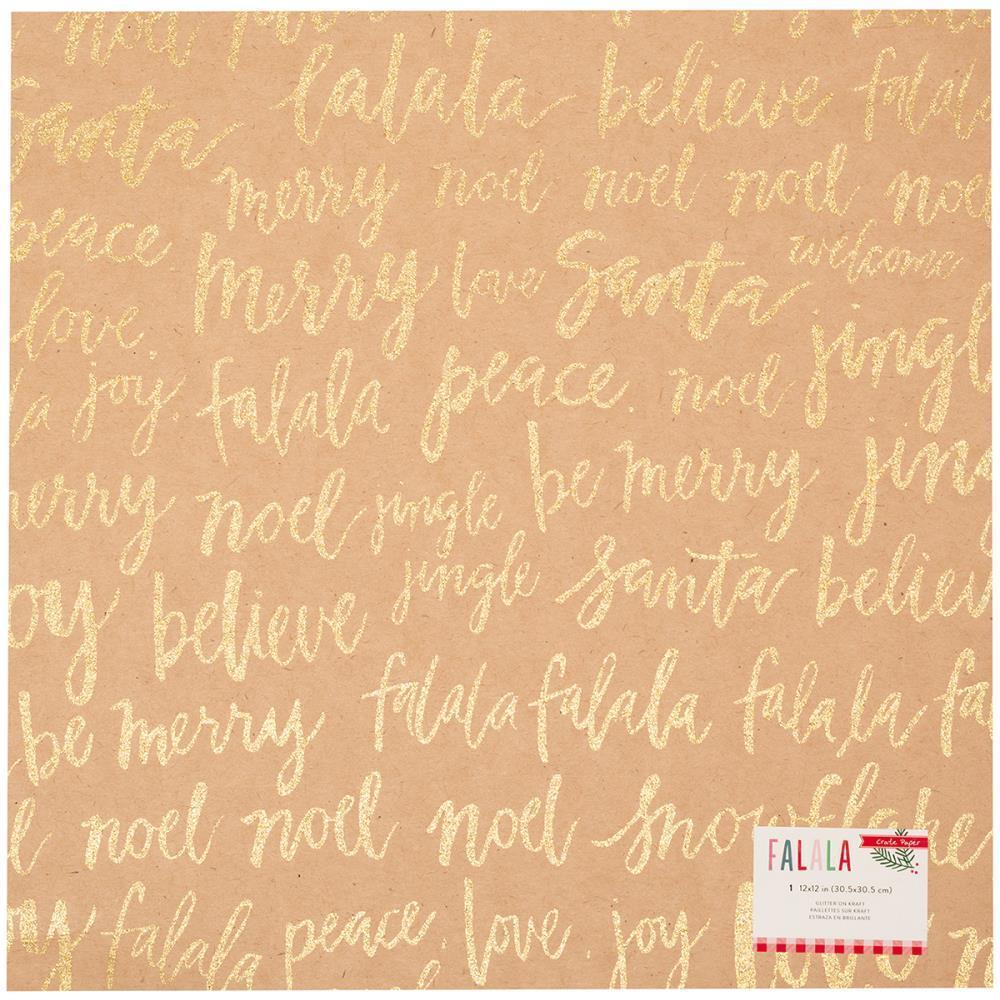 noel
Santa falala believe falala
merry noel noel noel noel
peace welcome
merry love Santa
love jingl
joy. falala peace. noel
merry noel jingle be merry jin
jingle santa believ
oy believe
be merry falala falala falala fa
noel noel noel snowflake
falala peace. love. joy
FALALA Crate Paper
1 12x12 in (30.5x30.5 cm)
GLITTER ON KRAFT
PAILLETTES SUR KRAFT
ESTRAZA EN BRILLANTE